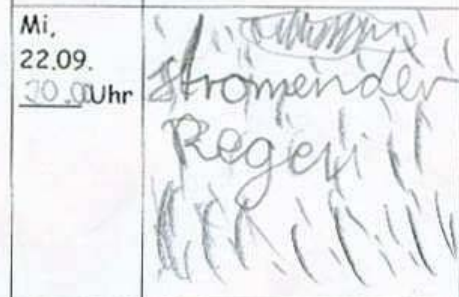 Mi,
22.09.
20.00 Uhr
stromender
Regen